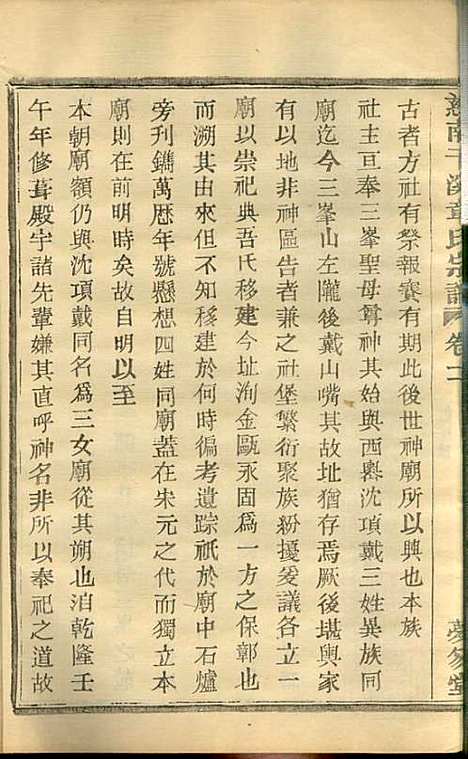 慈南干溪章氏宗譜 卷二
古者方社有祭報賽有期此後世神廟所以興也本族
社主亘奉三峯聖母尊神其始與西嶴沈項戴三姓異族同
廟迄今三峯山左隴後戴山嘴其故址猶存焉厥後堪輿家
有以地非神區告者兼之社堡繁衍聚族紛擾爰議各立一
廟以崇祀典吾氏移建今址洵金甌永固爲一方之保鄣也
而溯其由來但不知移建於何時徧考遺踪祇於廟中石爐
旁刊鐫萬歷年號懸想四姓同廟蓋在宋元之代而獨立本
廟則在前明時矣故自明以至
本朝廟額仍與沈項戴同名爲三女廟從其朔也洎乾隆壬
午年修葺殿宇諸先輩嫌其直呼神名非所以奉祀之道故